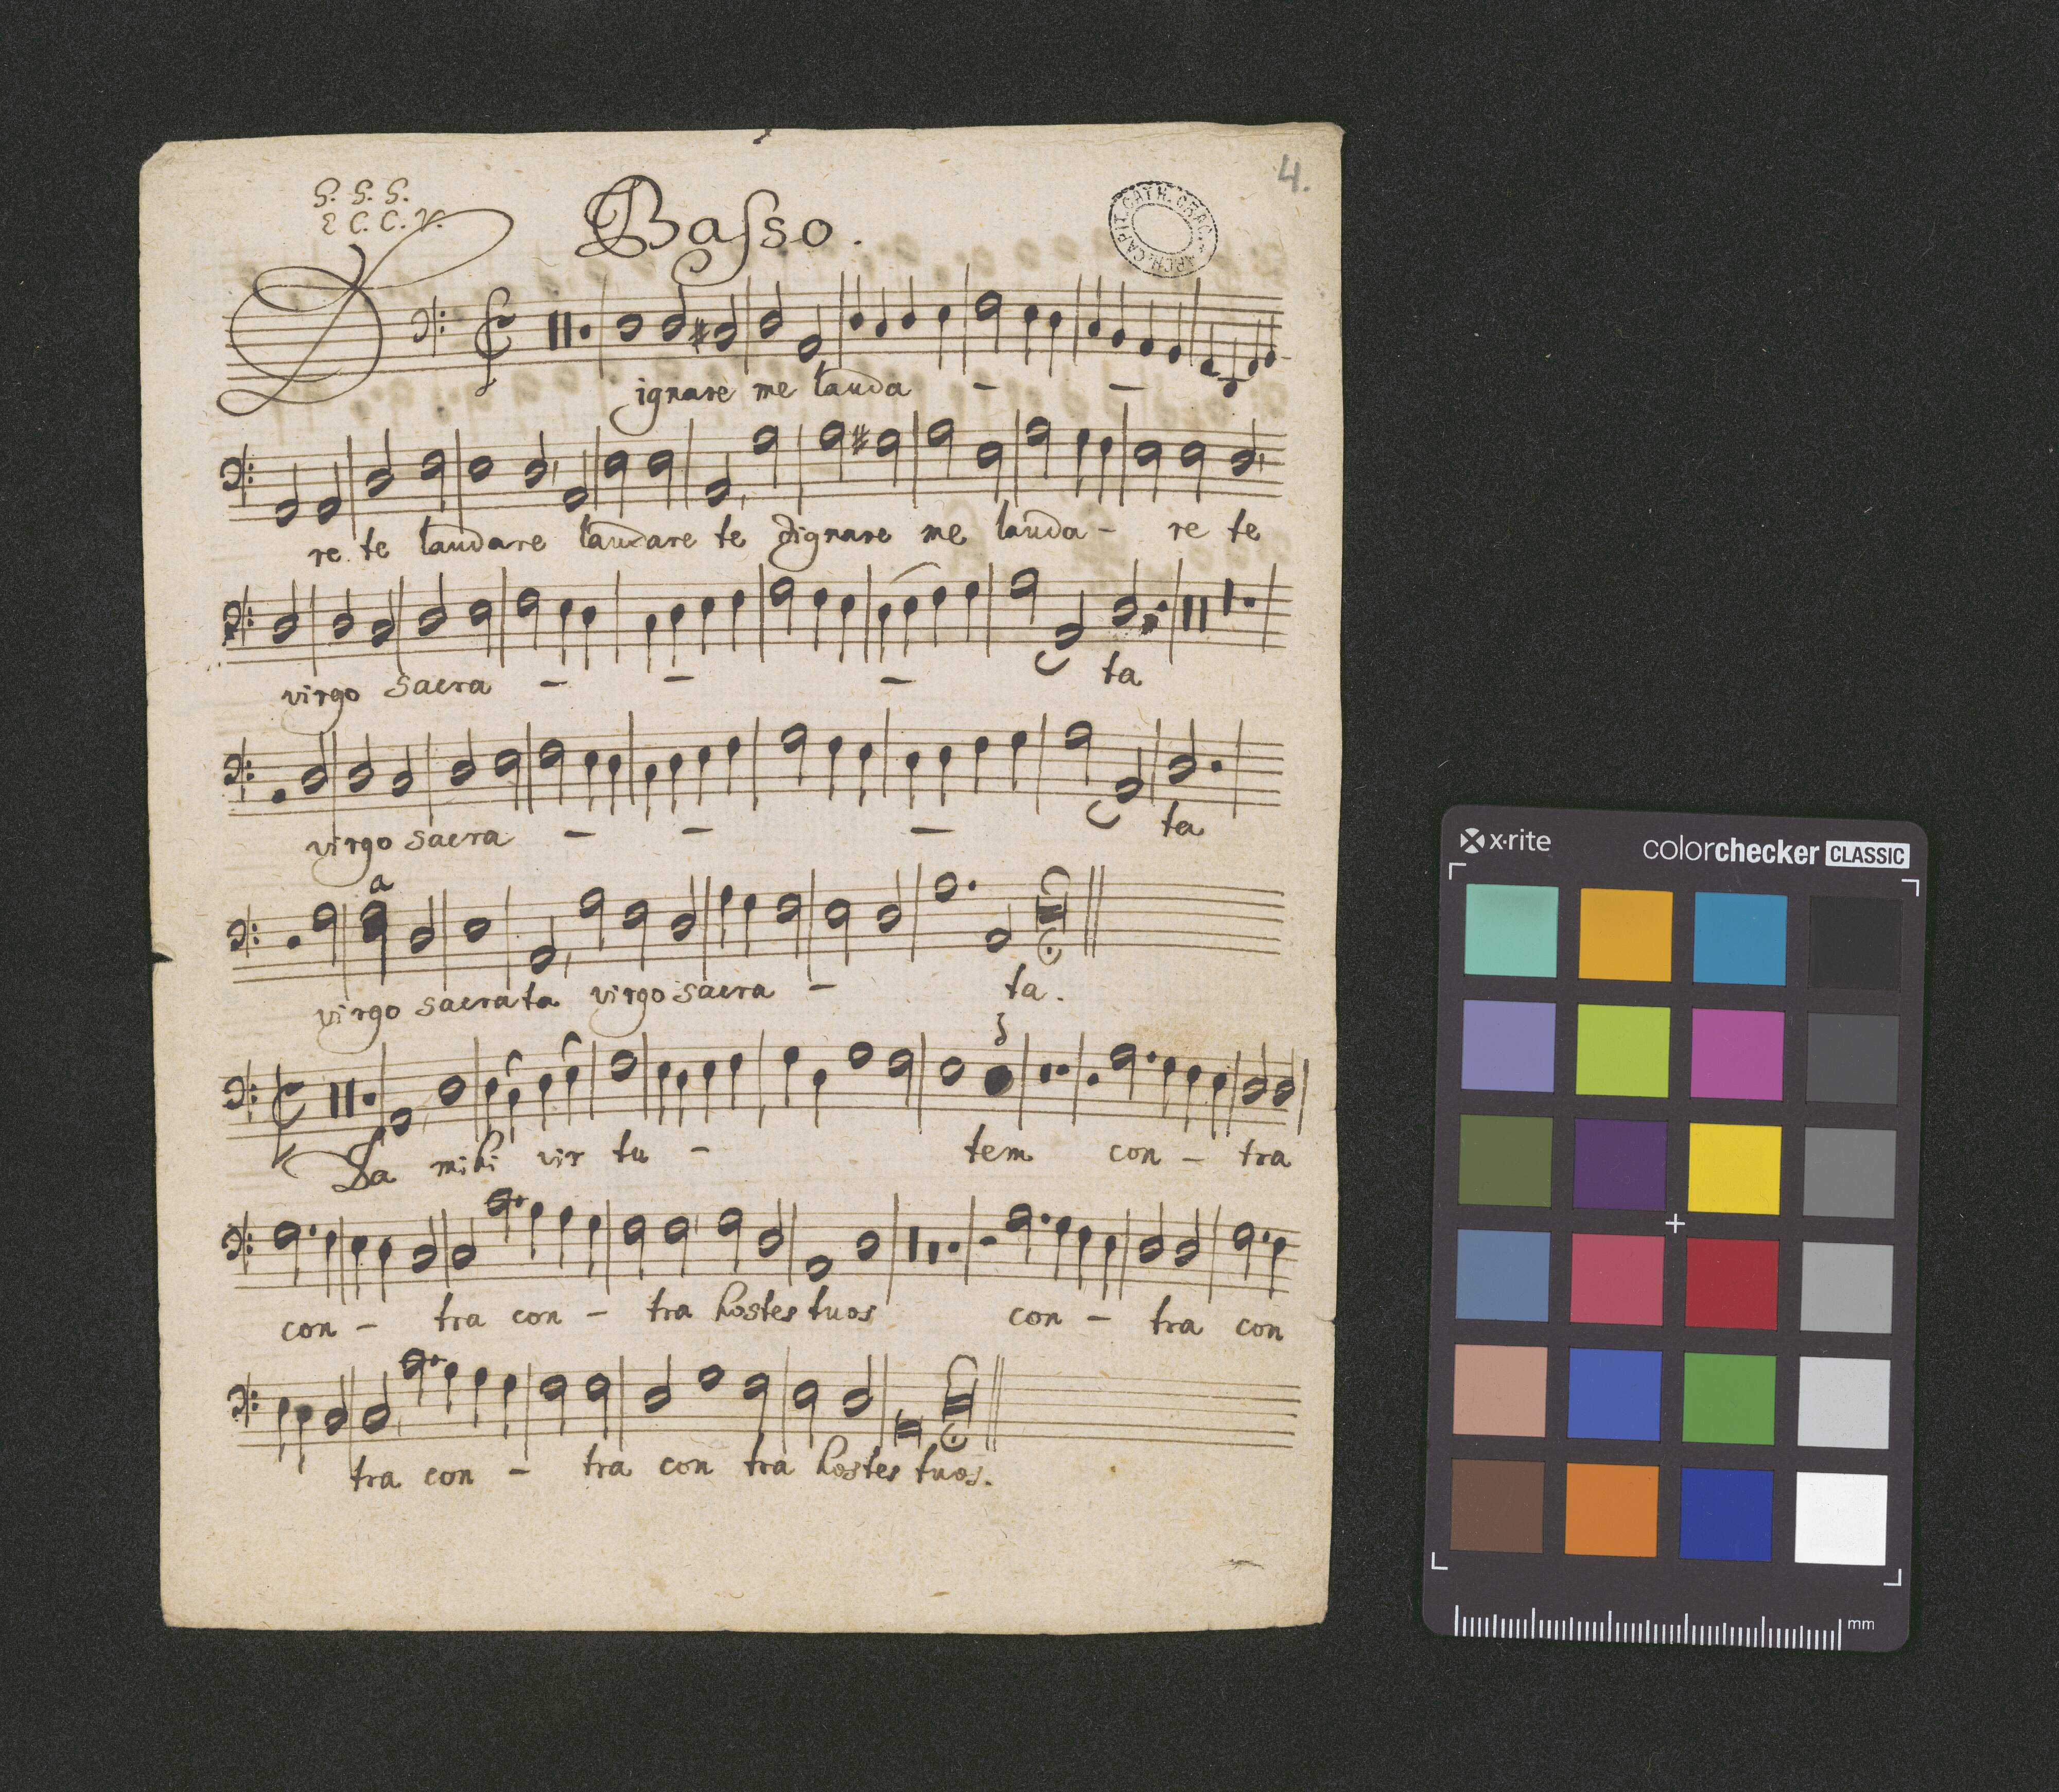 4.
G. G. G.
Basso.
ARCH. CAPIT. CATH. CRAC.
Dignare me lauda - -
re te laudare laudare te dignare me lauda - re te
virgo sacra - - - ta
virgo sacra - - - ta
a
virgo sacrata virgo sacra - ta.
Da mihi vir tu - tem con - tra
con - tra con - tra hostes tuos con - tra con
tra con - tra con tra hostes tuos.
x-rite
colorchecker CLASSIC
mm